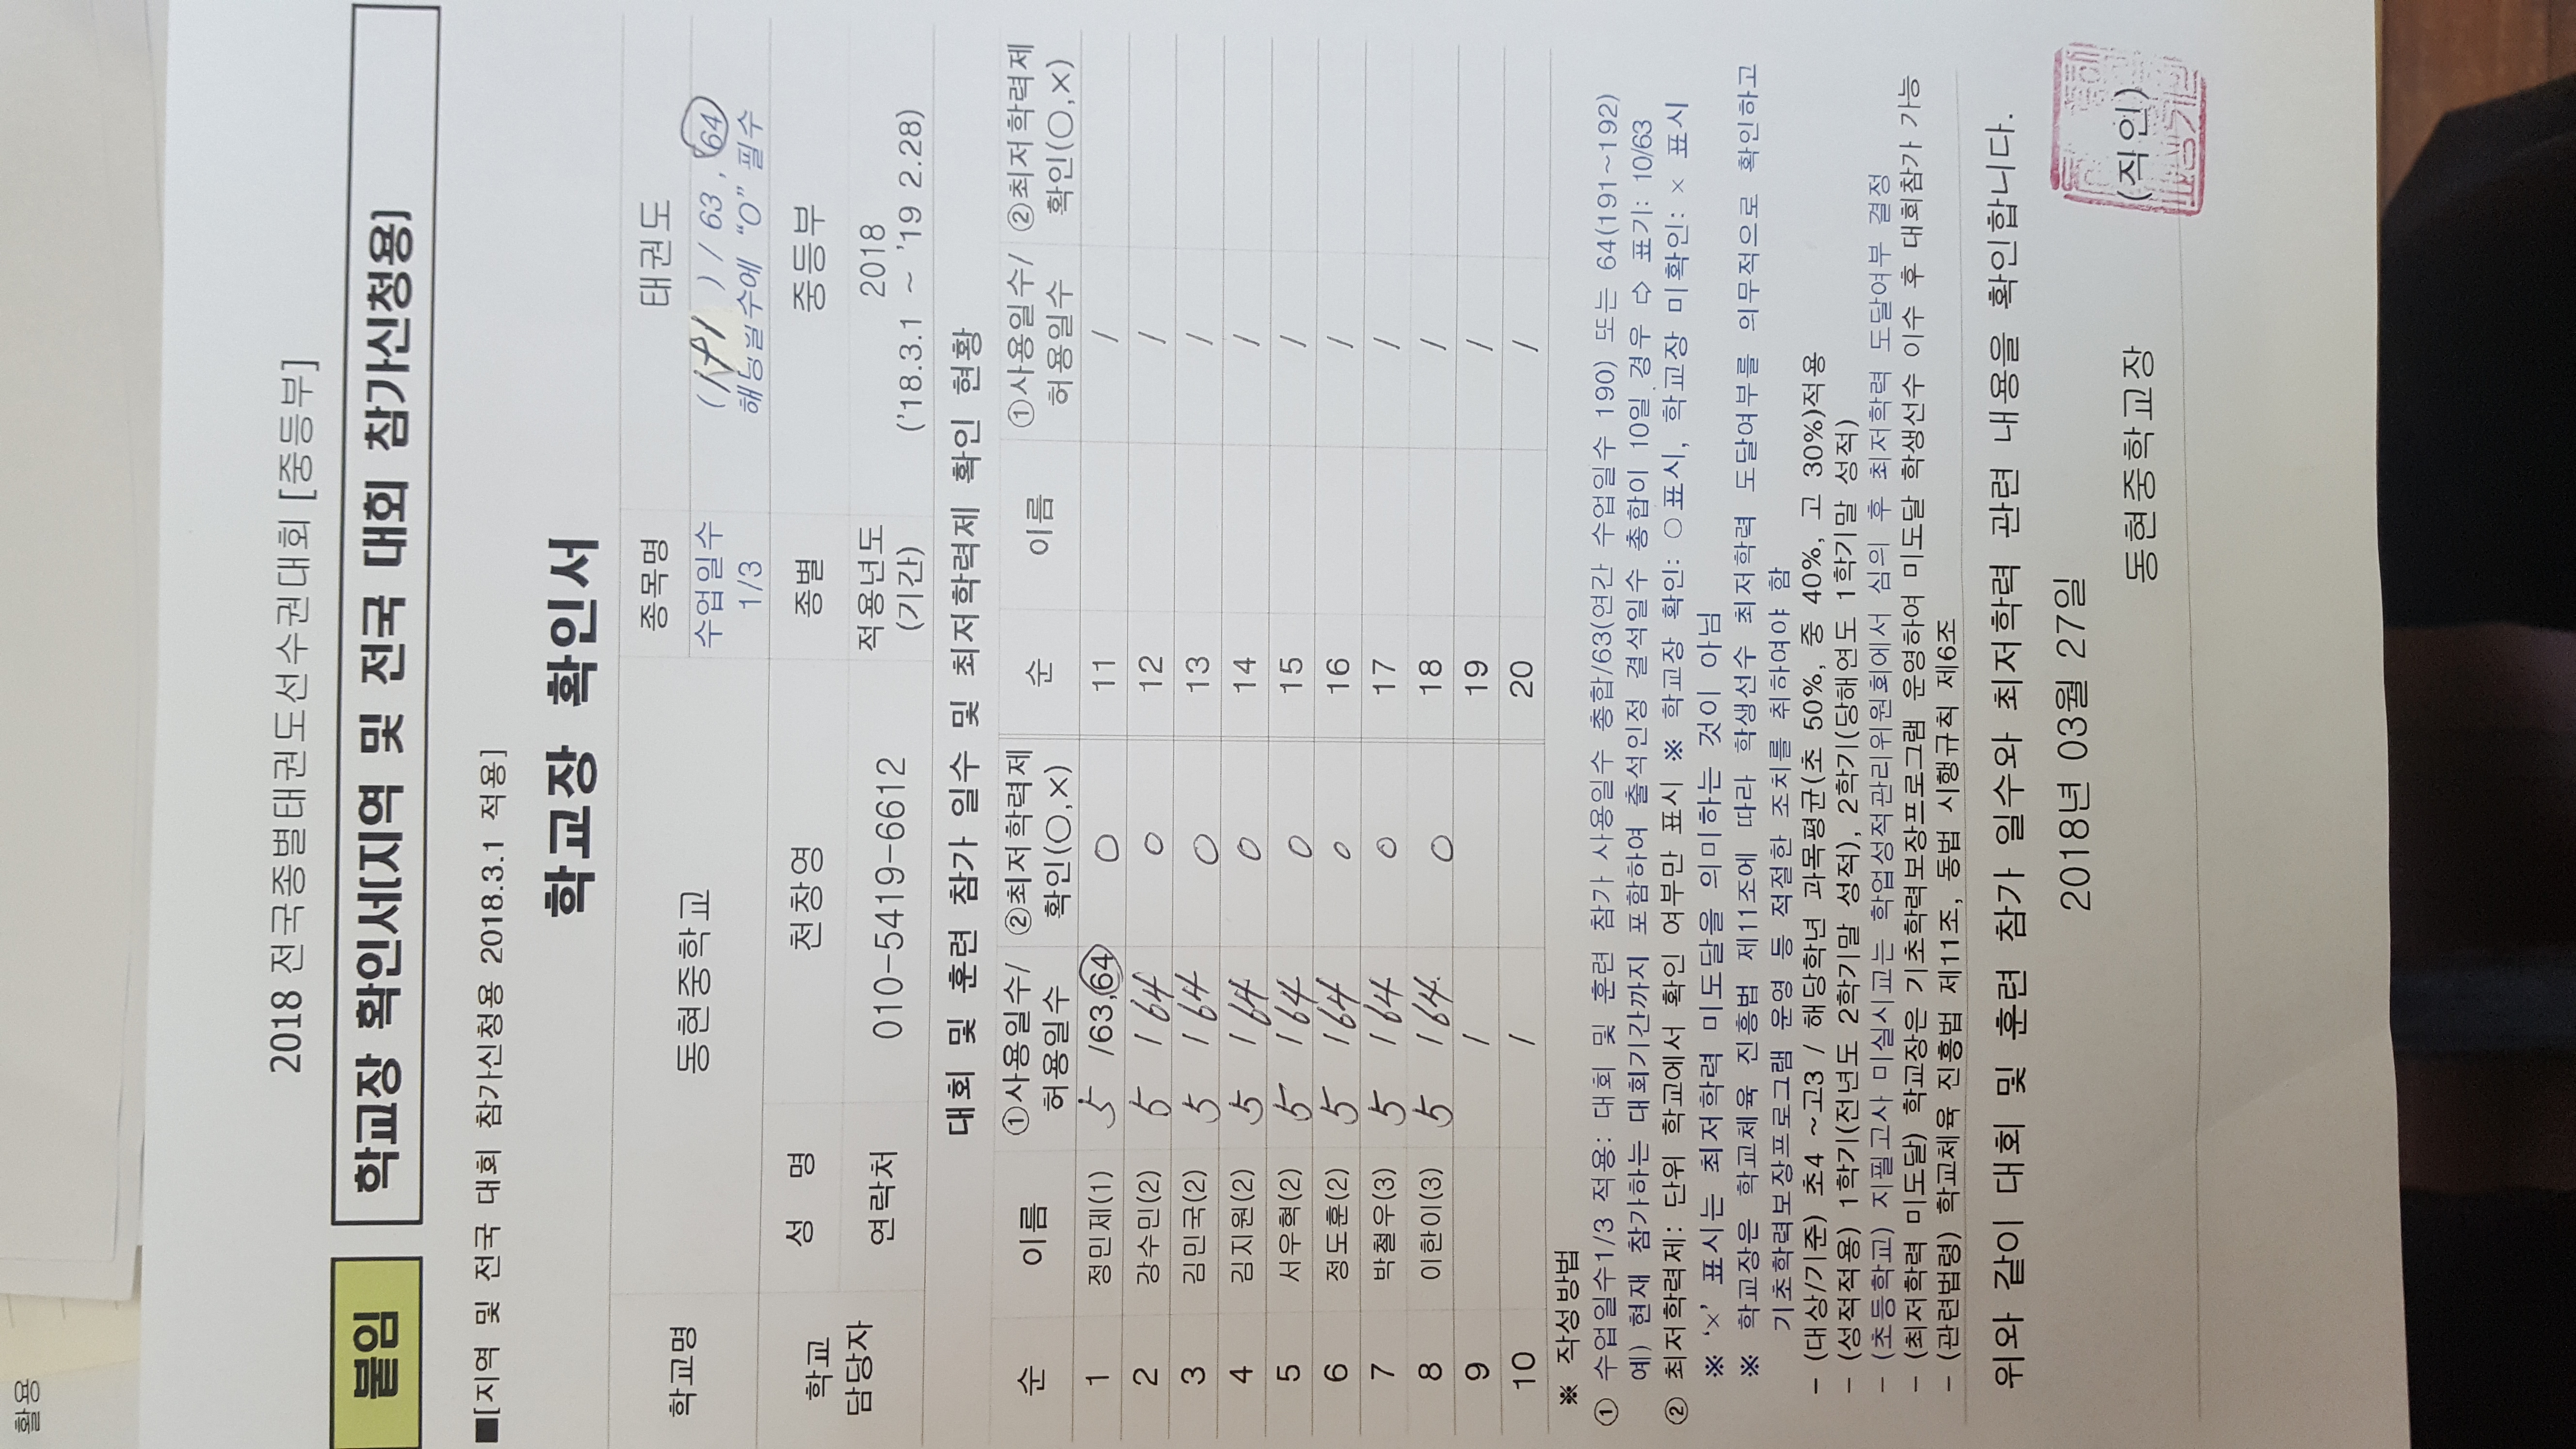 활용
2018 전국종별태권도선수권대회 [중등부]
붙임 학교장 확인서[지역 및 전국 대회 참가신청용]
■[지역 및 전국 대회 참가신청용 2018.3.1 적용]
학교장 확인서
학교명 동현중학교 종목명 태권도
수업일수 1/3 ( ) / 63 , 64
해당일수에 “O” 필수
학교 담당자 성 명 천창영 종별 중등부
연락처 010-5419-6612 적용년도 (기간) 2018 ('18.3.1 ~ '19 2.28)
대회 및 훈련 참가 일수 및 최저학력제 확인 현황
순 이름 ①사용일수/허용일수 ②최저학력제 확인(○,×) 순 이름 ①사용일수/허용일수 ②최저학력제 확인(○,×)
1 정민제(1) 5 /63,64 ○ 11 /
2 강수민(2) 5 / 64 ○ 12 /
3 김민국(2) 5 / 64 ○ 13 /
4 김지원(2) 5 / 64 ○ 14 /
5 서우혁(2) 5 / 64 ○ 15 /
6 정도훈(2) 5 / 64 ○ 16 /
7 박철우(3) 5 / 64 ○ 17 /
8 이한이(3) 5 / 64 ○ 18 /
9 / 19 /
10 / 20 /
※ 작성방법
① 수업일수1/3 적용: 대회 및 훈련 참가 사용일수 총합/63(연간 수업일수 190) 또는 64(191~192)
예) 현재 참가하는 대회기간까지 포함하여 출석인정 결석일수 총합이 10일 경우 ⇨ 표기: 10/63
② 최저학력제: 단위 학교에서 확인 여부만 표시 ※ 학교장 확인: ○표시, 학교장 미확인: × 표시
※ ‘×’ 표시는 최저학력 미도달을 의미하는 것이 아님
※ 학교장은 학교체육 진흥법 제11조에 따라 학생선수 최저학력 도달여부를 의무적으로 확인하고
기초학력보장프로그램 운영 등 적절한 조치를 취하여야 함
- (대상/기준) 초4 ~고3 / 해당학년 과목평균(초 50%, 중 40%, 고 30%)적용
- (성적적용) 1학기(전년도 2학기말 성적), 2학기(당해연도 1학기말 성적)
- (초등학교) 지필고사 미실시교는 학업성적관리위원회에서 심의 후 최저학력 도달여부 결정
- (최저학력 미도달) 학교장은 기초학력보장프로그램 운영하여 미도달 학생선수 이수 후 대회참가 가능
- (관련법령) 학교체육 진흥법 제11조, 동법 시행규칙 제6조
위와 같이 대회 및 훈련 참가 일수와 최저학력 관련 내용을 확인합니다.
2018년 03월 27일
동현중학교장 (직인)